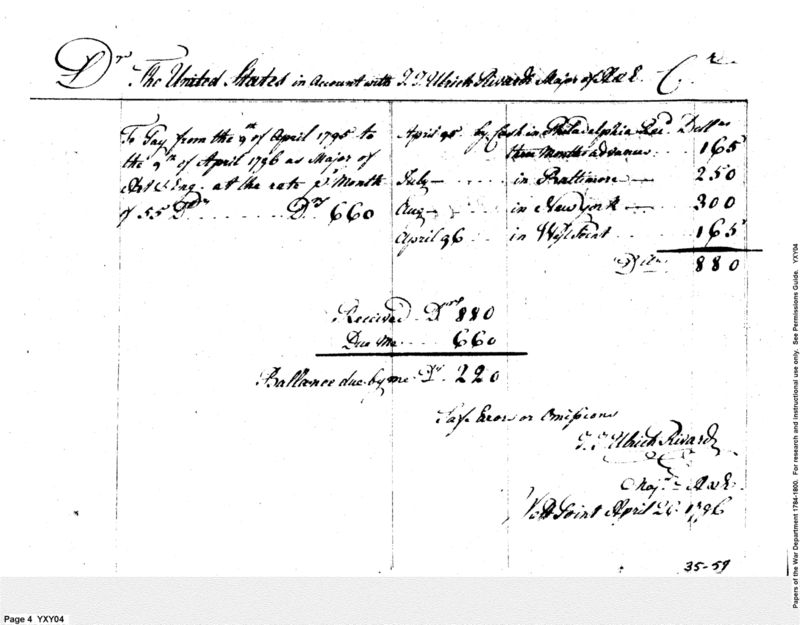 Drs The United States in Account with J. J. Ulrich Rivardi Major of A & E. Cr
To Pay from the 9th of April 1795 to
the 9th of April 1796 as Major of
Art & Eng. at the rate pr Month
of 55 Drs ........ Drs 660
April 95 by Cash in Philadelphia Dollars
three Months advance ... 165
July — in Baltimore — 250
Aug — in New York — 300
April 96 .... in West Point ... 165
Drs 880
Received Drs 880
Due Me .... 660
Ballance due by me Drs 220
Save Erors or Omissions
J. J. Ulrich Rivardi
Majr A & E.
West Point April 1796
35-59
Page 4 YXY04
Papers of the War Department 1784-1800. For research and instructional use only. See Permissions Guide. YXY04